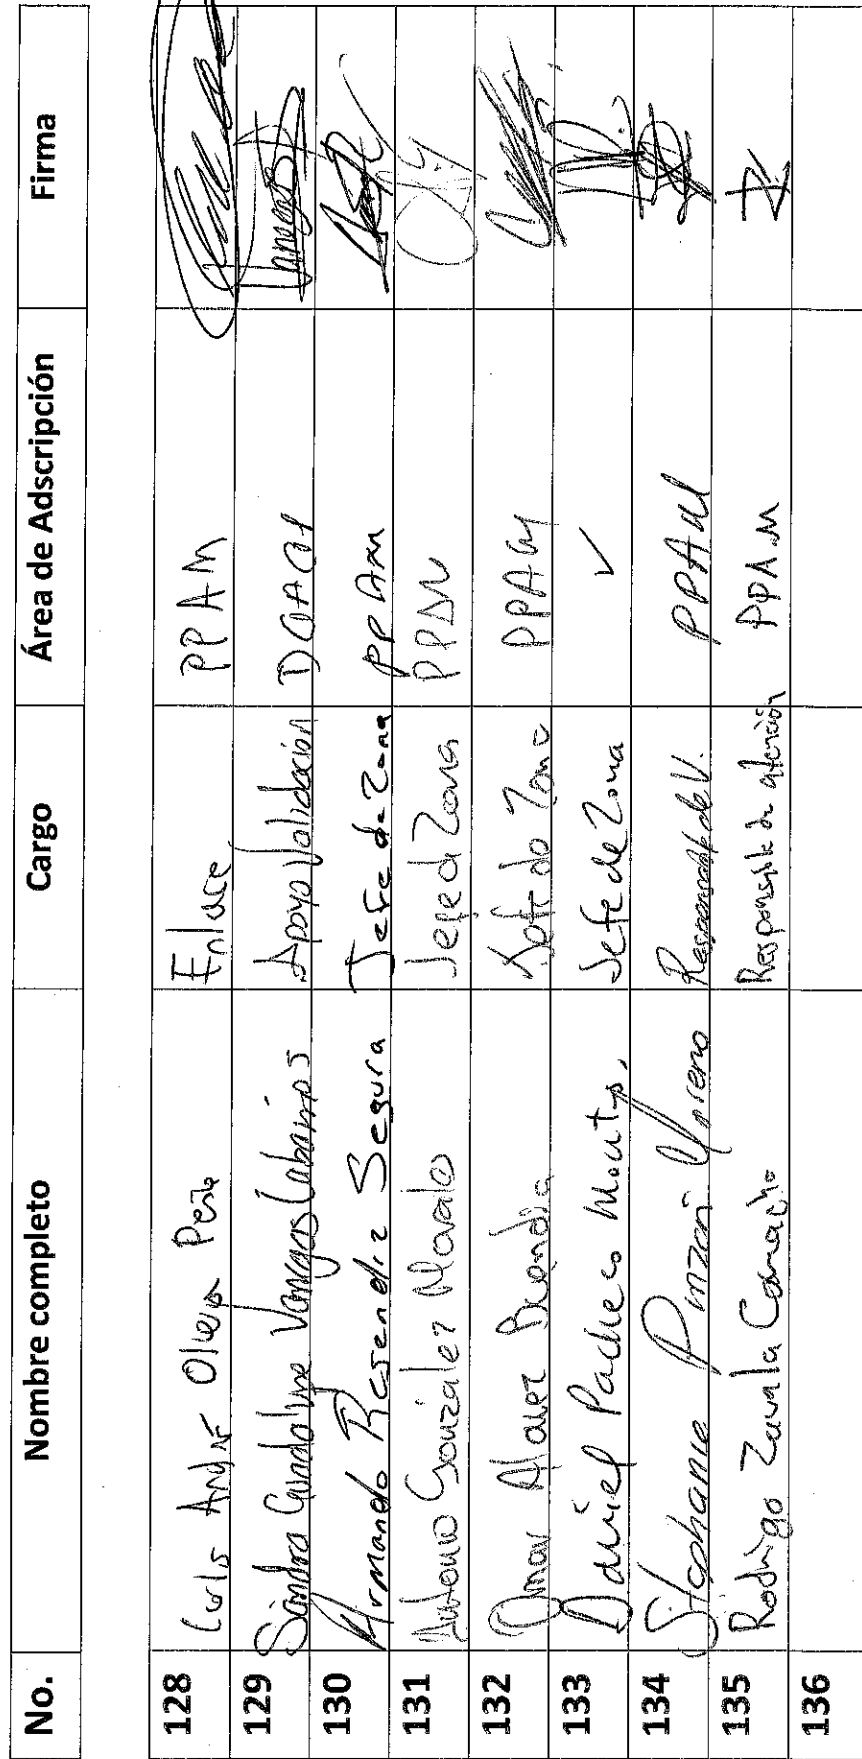 No. Nombre completo Cargo Área de Adscripción Firma
128 Andre Olvera Peña Enlace PPAM
129 Sandra Guadalupe Vanegas Cabrera Apoyo Validación
130 Armando Resendiz Segura Jefe de Zona PPAM
131 Antonio González Morales Jefe de Zona PPAM
132 Omar Alvarez Jefe de Zona PPAM
133 Daniel Pacheco Jefe de Zona ✓
134 Stephanie Pinzon Moreno Responsable de V. PPAM
135 Rodrigo Zavala Camacho Responsable de atención PPAM
136